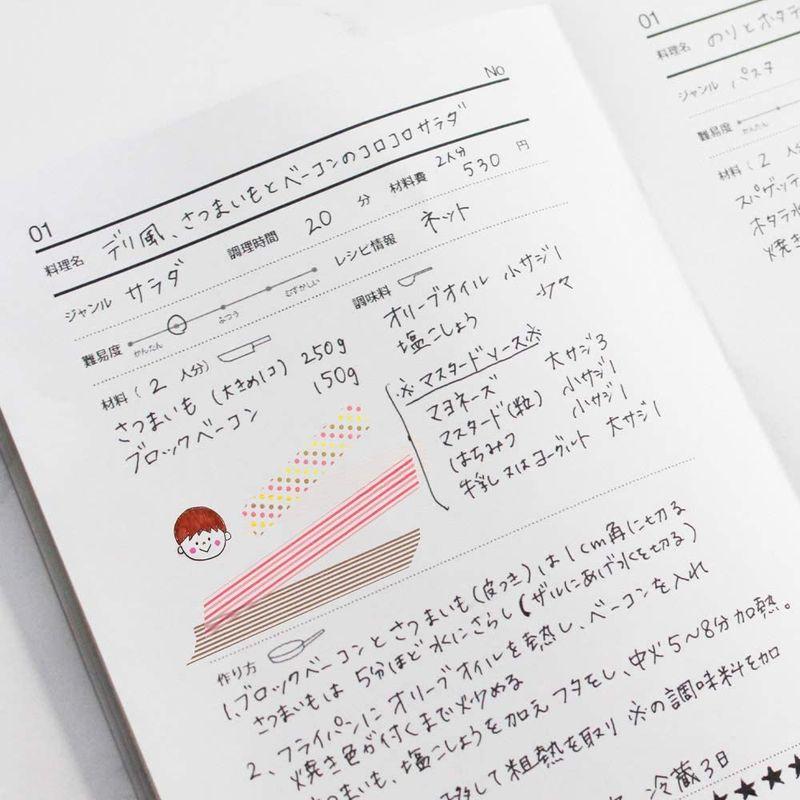 No
01
料理名 デリ風、さつまいもとベーコンのコロコロサラダ
ジャンル サラダ 調理時間 20 分 材料費 2人分 530 円
難易度 かんたん ふつう むずかしい レシピ情報 ネット
材料（2 人分）
さつまいも（大きめ1コ） 250g
ブロックベーコン 150g
調味料
オリーブオイル 小サジ1
塩こしょう 少々
※マスタードソース※
マヨネーズ 大サジ3
マスタード（粒） 小サジ1
はちみつ 小サジ1
牛乳又はヨーグルト 大サジ1
作り方
1、ブロックベーコンとさつまいも（皮つき）は1cm角に切る
さつまいもは5分ほど水にさらし（ザルにあげ水を切る）
2、フライパンにオリーブオイルを熱し、ベーコンを入れ
焼き色が付くまで炒める
さつまいも、塩こしょうを加えフタをし、中火5〜8分加熱。
移して粗熱を取り ※の調味料を加
冷蔵3日
★★★
01
料理名 のりとホタテ
ジャンル パスタ
難易度 かんたん
材料（2 人
スパゲッテ
ホタテ水
焼き